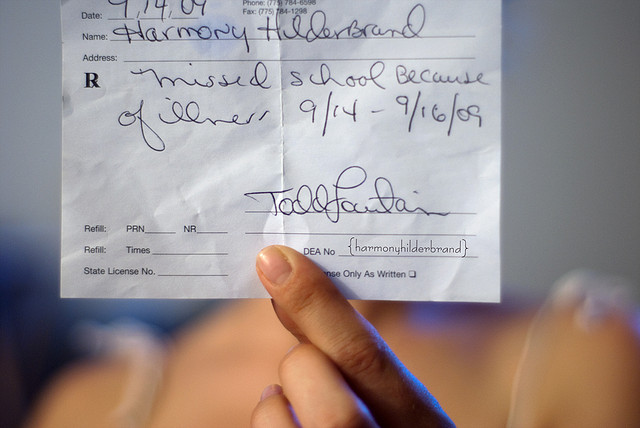 Phone: (775) 784-6598
Date: 9/14/09 Fax: (775) 784-1298
Name: Harmony Hilderbrand
Address:
R missed school Because
of illness 9/14 - 9/16/09
Todd Fountain
Refill: PRN NR
Refill: Times DEA No {harmonyhilderbrand}
State License No. nse Only As Written